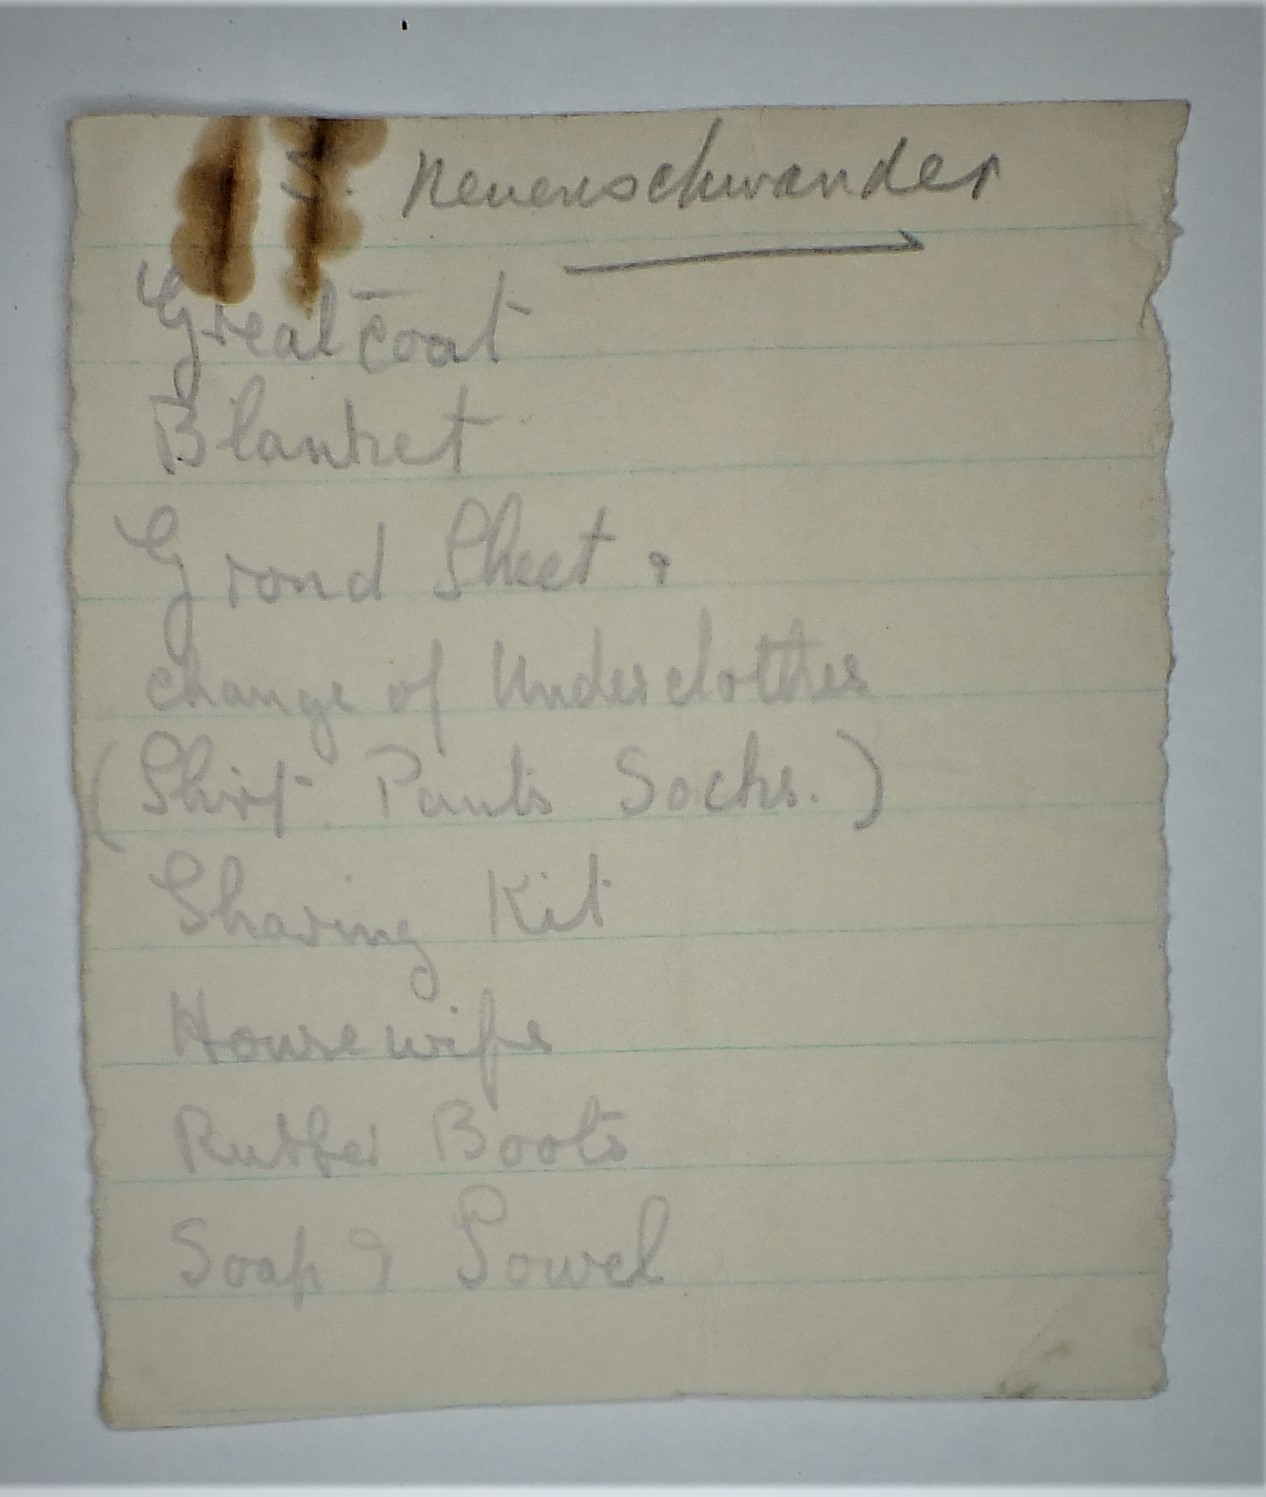 Neuenschwander
Great coat
Blanket
Grond Sheet.
change of Underclothes
(Shirt. Pants Socks.)
Shaving Kit
Housewife
Rubber Boots
Soap & Towel